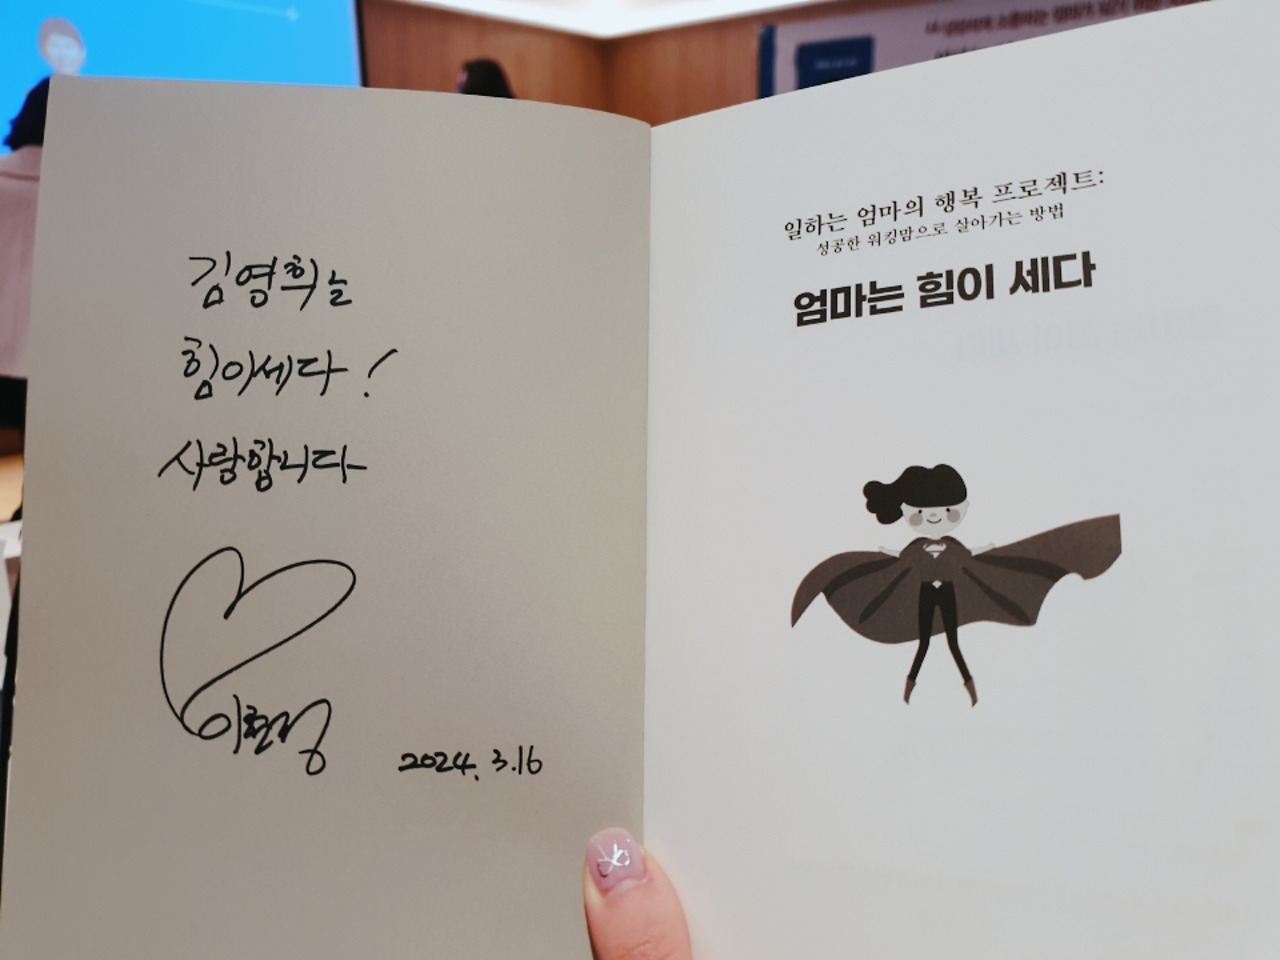 김영희는
힘이세다!
사랑합니다
이현정
2024. 3.16
일하는 엄마의 행복 프로젝트:
성공한 워킹맘으로 살아가는 방법
엄마는 힘이 세다